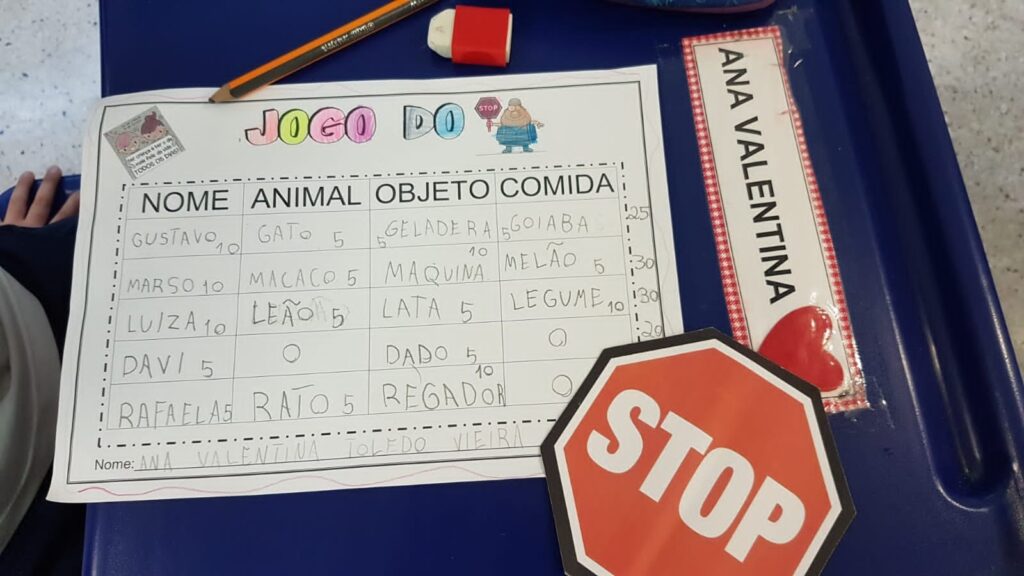 JOGO DO
STOP
TODOS OS DIAS!
NOME ANIMAL OBJETO COMIDA
GUSTAVO 10 GATO 5 5 GELADERA 5 GOIABA 25
MARSO 10 MACACO 5 MAQUINA 10 MELÃO 5 30
LUIZA 10 LEÃO 5 LATA 5 LEGUME 10 30
DAVI 5 O DADO 5 O 20
RAFAELA 5 RATO 5 REGADOR 10 O
Nome: ANA VALENTINA TOLEDO VIEIRA
ANA VALENTINA
STOP